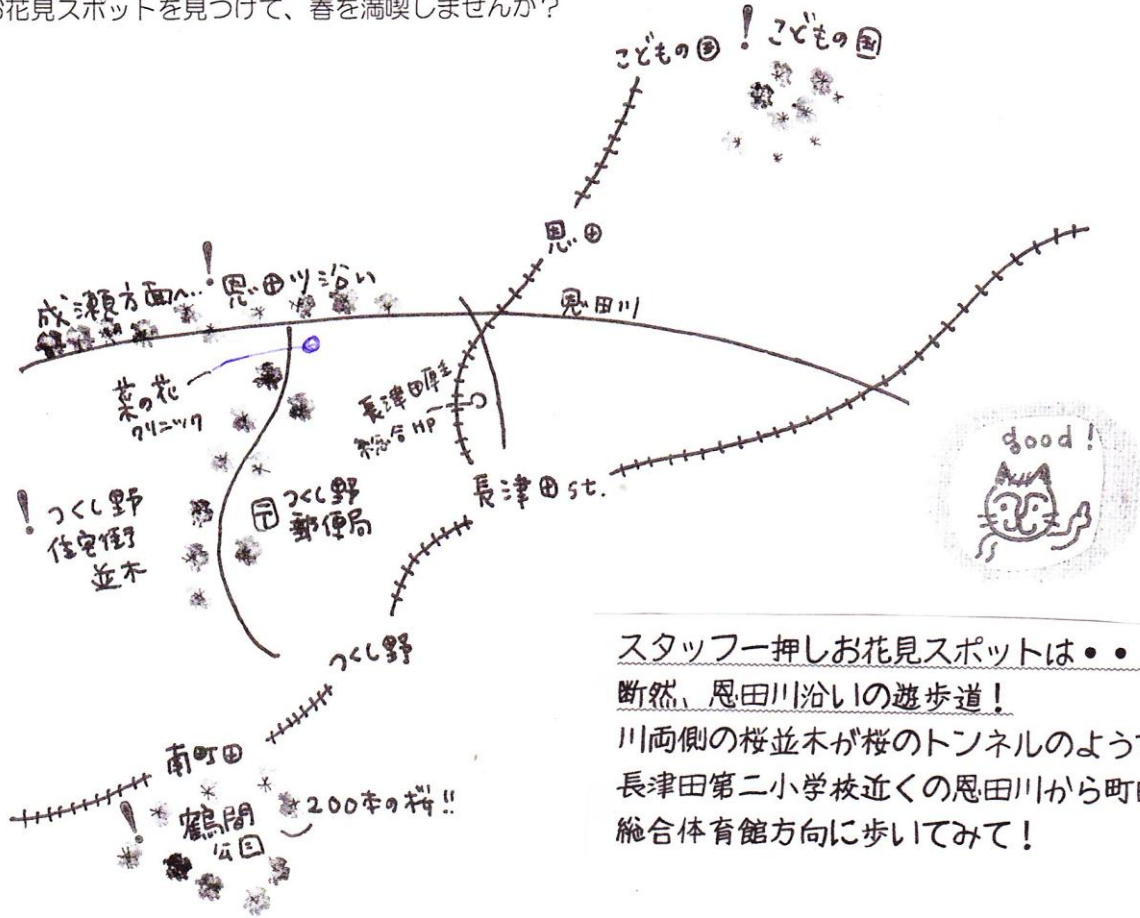 お花見スポットを見つけて、春を満喫しませんか？
こどもの国
！こどもの国
恩田
成瀬方面へ…
！恩田川沿い
恩田川
菜の花
クリニック
長津田厚生
総合HP
！つくし野
住宅街
並木
〒つくし野
郵便局
長津田st.
good!
つくし野
南町田
！鶴間
公園
200本の桜!!
スタッフ一押しお花見スポットは・・
断然、恩田川沿いの遊歩道！
川両側の桜並木が桜のトンネルのよう
長津田第二小学校近くの恩田川から町
総合体育館方向に歩いてみて！